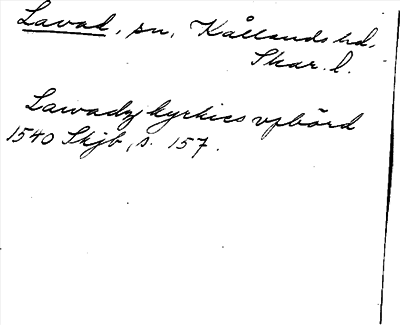 Lavad, sn, Kållands hd,
Skar. l.
Lawadz kyrkies vpbörd
1540 Skjb, s. 157.